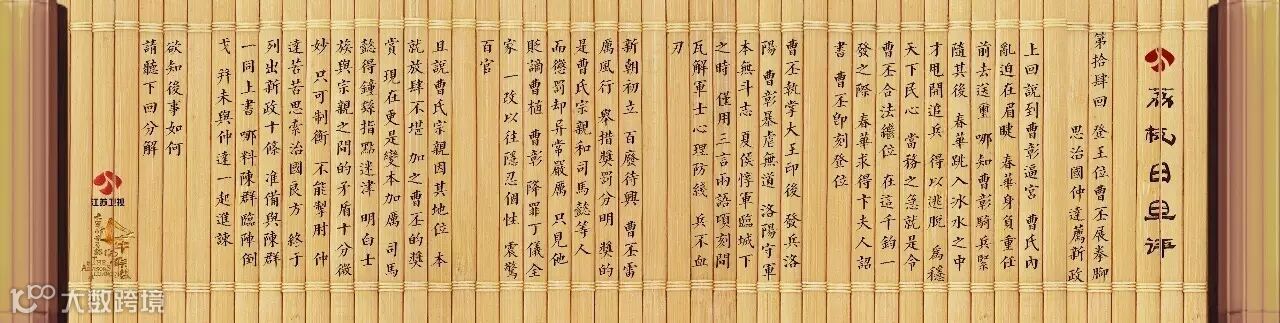 荔枝日里评
第拾肆回 登王位曹丕展拳腳
思治國仲達薦新政
上回說到曹彰逼宮 曹氏內
亂迫在眉睫 春華身負重任
前去送璽 哪知曹彰騎兵緊
隨其後 春華跳入冰水之中
才甩開追兵 得以逃脫 為穩
天下民心 當務之急就是令
曹丕合法繼位 在這千鈞一
發之際 春華求得卞夫人詔
書 曹丕即刻登位
曹丕執掌大王印後 發兵洛
陽 曹彰暴虐無道 洛陽守軍
本無斗志 夏侯惇軍臨城下
之時 僅用三言兩語頃刻間
瓦解軍士心理防綫 兵不血
刃
新朝初立 百廢待興 曹丕雷
厲風行 舉措獎罰分明 獎的
是曹氏宗親和司馬懿等人
而懲罰却异常嚴厲 只見他
貶謫曹植 曹彰 降罪丁儀全
家 一改以往隱忍個性 震驚
百官
且說曹氏宗親因其地位 本
就放肆不堪 加之曹丕的獎
賞 現在更是變本加厲 司馬
懿得鐘繇指點迷津 明白士
族與宗親之間的矛盾十分微
妙 只可制衡 不能掣肘 仲
達苦苦思索治國良方 終于
列出新政十條 准備與陳群
一同上書 哪料陳群臨陣倒
戈 并未與仲達一起進諫
欲知後事如何
請聽下回分解
江苏卫视
大数跨境